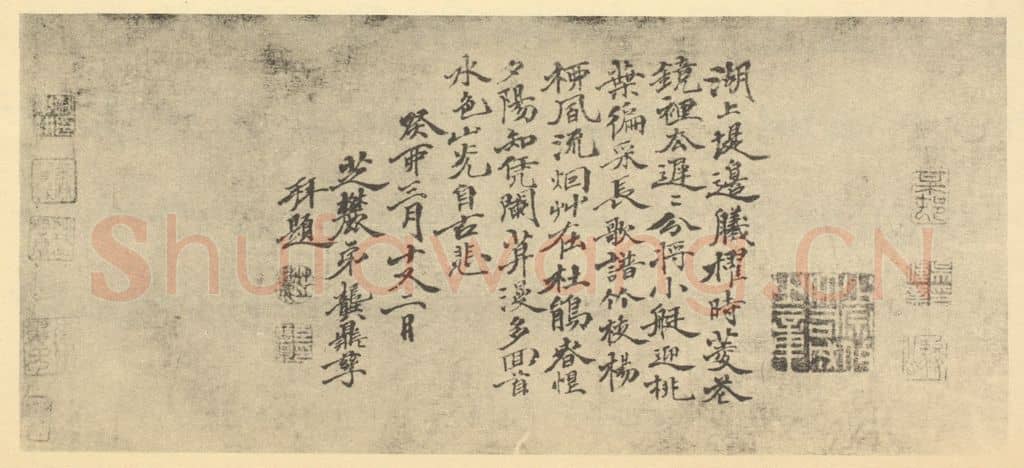 湖上堤邊艤櫂時菱花
鏡裡去遲〻分將小艇迎桃
葉徧采長歌譜竹枝楊
柳風流烟艸在杜鵑春恨
夕陽知凭闌莫漫多回首
水色山光自古悲
癸卯三月十又二日
芝麓弟龔鼎孳
拜題
Shufawang.CN